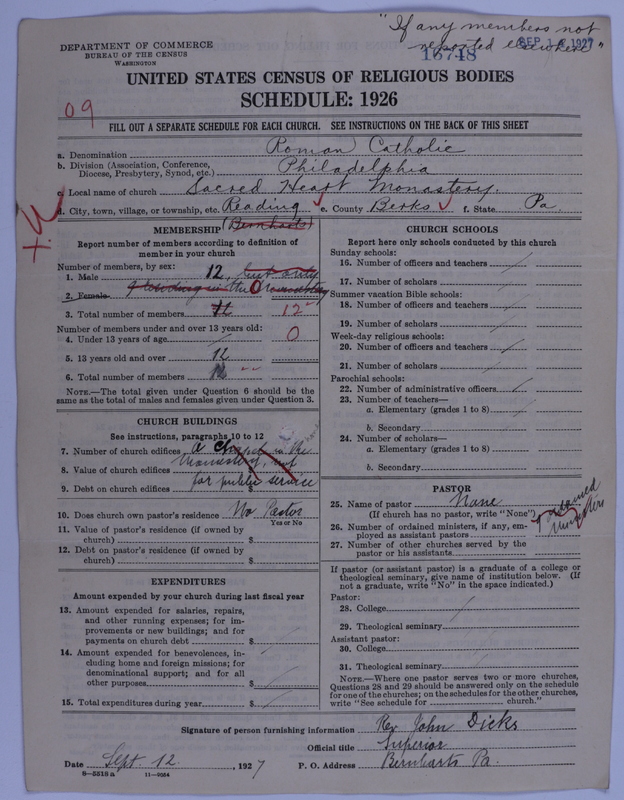 "If any members not
reported elsewhere"
DEPARTMENT OF COMMERCE
BUREAU OF THE CENSUS
WASHINGTON
SEP 1 1927
15748
UNITED STATES CENSUS OF RELIGIOUS BODIES
SCHEDULE: 1926
09
FILL OUT A SEPARATE SCHEDULE FOR EACH CHURCH. SEE INSTRUCTIONS ON THE BACK OF THIS SHEET
a. Denomination Roman Catholic
b. Division (Association, Conference, Diocese, Presbytery, Synod, etc.) Philadelphia
c. Local name of church Sacred Heart Monastery.
d. City, town, village, or township, etc. Reading e. County Berks f. State Pa
(Bernharts)
MEMBERSHIP
Report number of members according to definition of
member in your church
Number of members, by sex:
1. Male 12, but only
2. Female 9 residing in the Monastery 0
3. Total number of members 12 12
Number of members under and over 13 years old:
4. Under 13 years of age 0
5. 13 years old and over 12
6. Total number of members 12 " "
NOTE.—The total given under Question 6 should be
same as the total of males and females given under Question 3.
CHURCH BUILDINGS
See instructions, paragraphs 10 to 12
7. Number of church edifices a chapel in the
8. Value of church edifices Monastery, not
9. Debt on church edifices for public service
10. Does church own pastor's residence No Pastor
Yes or No
11. Value of pastor's residence (if owned by
church) $
12. Debt on pastor's residence (if owned by
church) $
EXPENDITURES
Amount expended by your church during last fiscal year
13. Amount expended for salaries, repairs,
and other running expenses; for im-
provements or new buildings; and for
payments on church debt $
14. Amount expended for benevolences, in-
cluding home and foreign missions; for
denominational support; and for all
other purposes $
15. Total expenditures during year $
CHURCH SCHOOLS
Report here only schools conducted by this church
Sunday schools:
16. Number of officers and teachers
17. Number of scholars
Summer vacation Bible schools:
18. Number of officers and teachers
19. Number of scholars
Week-day religious schools:
20. Number of officers and teachers
21. Number of scholars
Parochial schools:
22. Number of administrative officers
23. Number of teachers—
a. Elementary (grades 1 to 8)
b. Secondary
24. Number of scholars—
a. Elementary (grades 1 to 8)
b. Secondary
PASTOR
25. Name of pastor None
(If church has no pastor, write "None")
26. Number of ordained ministers, if any, em-
ployed as assistant pastors
27. Number of other churches served by the
pastor or his assistants
7 ordained
ministers
If pastor (or assistant pastor) is a graduate of a college or
theological seminary, give name of institution below. (If
not a graduate, write "No" in the space indicated.)
Pastor:
28. College
29. Theological seminary
Assistant pastor:
30. College
31. Theological seminary
NOTE.—Where one pastor serves two or more churches,
Questions 28 and 29 should be answered only on the schedule
for one of the churches; on the schedules for the other churches,
write "See schedule for church."
Signature of person furnishing information Rev. John Dicks
Official title Superior
Date Sept. 12, 1927 P. O. Address Bernharts Pa.
8—5518a 11—8664